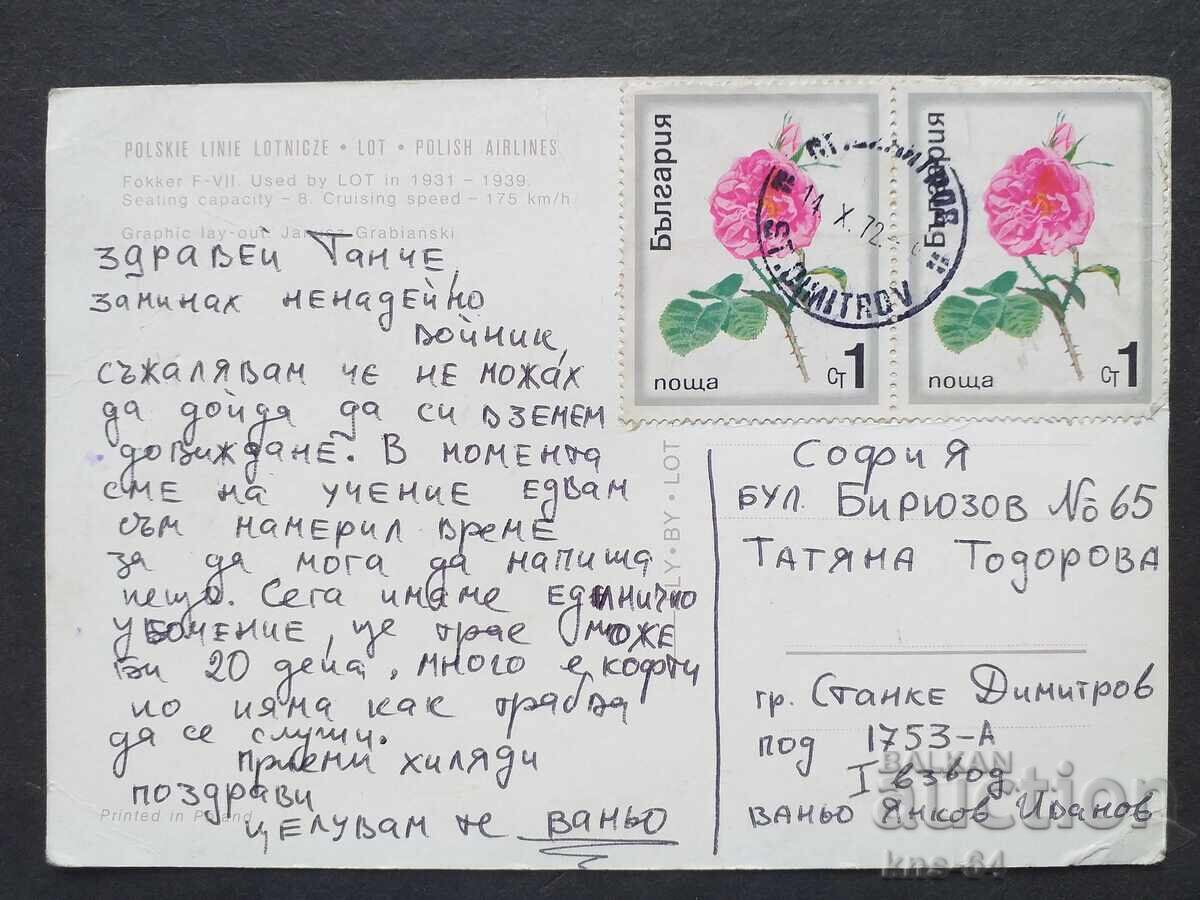 POLSKIE LINIE LOTNICZE • LOT • POLISH AIRLINES
Fokker F-VII. Used by LOT in 1931 – 1939.
Seating capacity – 8. Cruising speed – 175 km/h.
Graphic lay-out: Janusz Grabianski
ЗДРАВЕЙ ТАНЧЕ,
ЗАМИНАХ НЕНАДЕЙНО
ВОЙНИК,
СЪЖАЛЯВАМ ЧЕ НЕ МОЖАХ
ДА ДОЙДА ДА СИ ВЗЕМЕМ
ДОВИЖДАНЕ. В МОМЕНТА
СМЕ НА УЧЕНИЕ ЕДВАМ
СЪМ НАМЕРИЛ ВРЕМЕ
ЗА ДА МОГА ДА НАПИША
НЕЩО. СЕГА ИМАМЕ ЕДИНИЧНО
ОБУЧЕНИЕ, ЩЕ ТРАЕ МОЖЕ
БИ 20 ДЕНА, МНОГО Е КОФТИ
НО НЯМА КАК ТРЯБВА
ДА СЕ СЛУЖИ.
ПРИЕМИ ХИЛЯДИ
ПОЗДРАВИ
ЦЕЛУВАМ ТЕ ВАНЬО
Printed in Poland
LY • BY • LOT
България
поща
СТ 1
България
поща
СТ 1
14.X.72
DIMITROV
СОФИЯ
БУЛ. БИРЮЗОВ № 65
ТАТЯНА ТОДОРОВА
гр. СТАНКЕ ДИМИТРОВ
ПОД 1753-А
I ВЗВОД
ВАНЬО ЯНКОВ ИВАНОВ
BALKAN
auction
kns-64